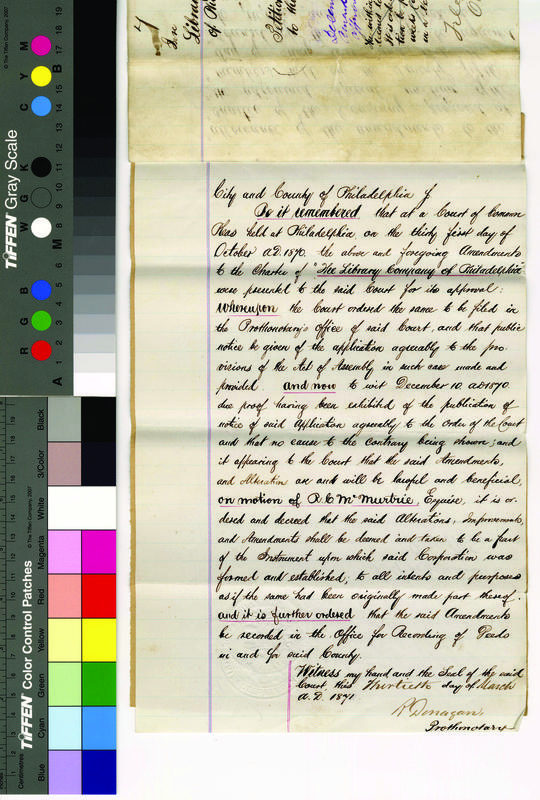 7
In
Library
of Ph
Petition
to th
City and County of Philadelphia ∫
Be it remembered that at a Court of Common
Pleas held at Philadelphia on the thirty first day of
October A.D. 1870. the above and foregoing Amendments
to the Charter of "The Library Company of Philadelphia"
were presented to the said Court for its approval:
whereupon the Court ordered the same to be filed in
the Prothonotary's Office of said Court, and that public
notice be given of the application agreeably to the pro-
visions of the Act of Assembly in such case made and
provided. and now to wit December 10. A.D. 1870.
due proof having been exhibited of the publication of
notice of said Application agreeably to the Order of the Court
and that no cause to the contrary being shown; and
it appearing to the Court that the said Amendments,
and Alteration are and will be lawful and beneficial,
on motion of R. C. McMurtrie, Esquire, it is or-
dered and decreed that the said Alterations, Improvements,
and Amendments shall be deemed and taken to be a part
of the Instrument upon which said Corporation was
formed and established, to all intents and purposes
as if the same had been originally made part thereof.
and it is further ordered that the said Amendments
be recorded in the Office for Recording of Deeds
in and for said County.
Witness my hand and the Seal of the said
Court, this Thirtieth day of March
A.D. 1871.
R Donagan
Prothonotary
© The Tiffen Company, 2007
TIFFEN Gray Scale
R G B W G K C Y M
A 1 2 3 4 5 6 M 8 9 10 11 12 13 14 15 B 17 18 19
TIFFEN Color Control Patches
© The Tiffen Company, 2007
Centimetres
Blue Cyan Green Yellow Red Magenta White 3/Color Black